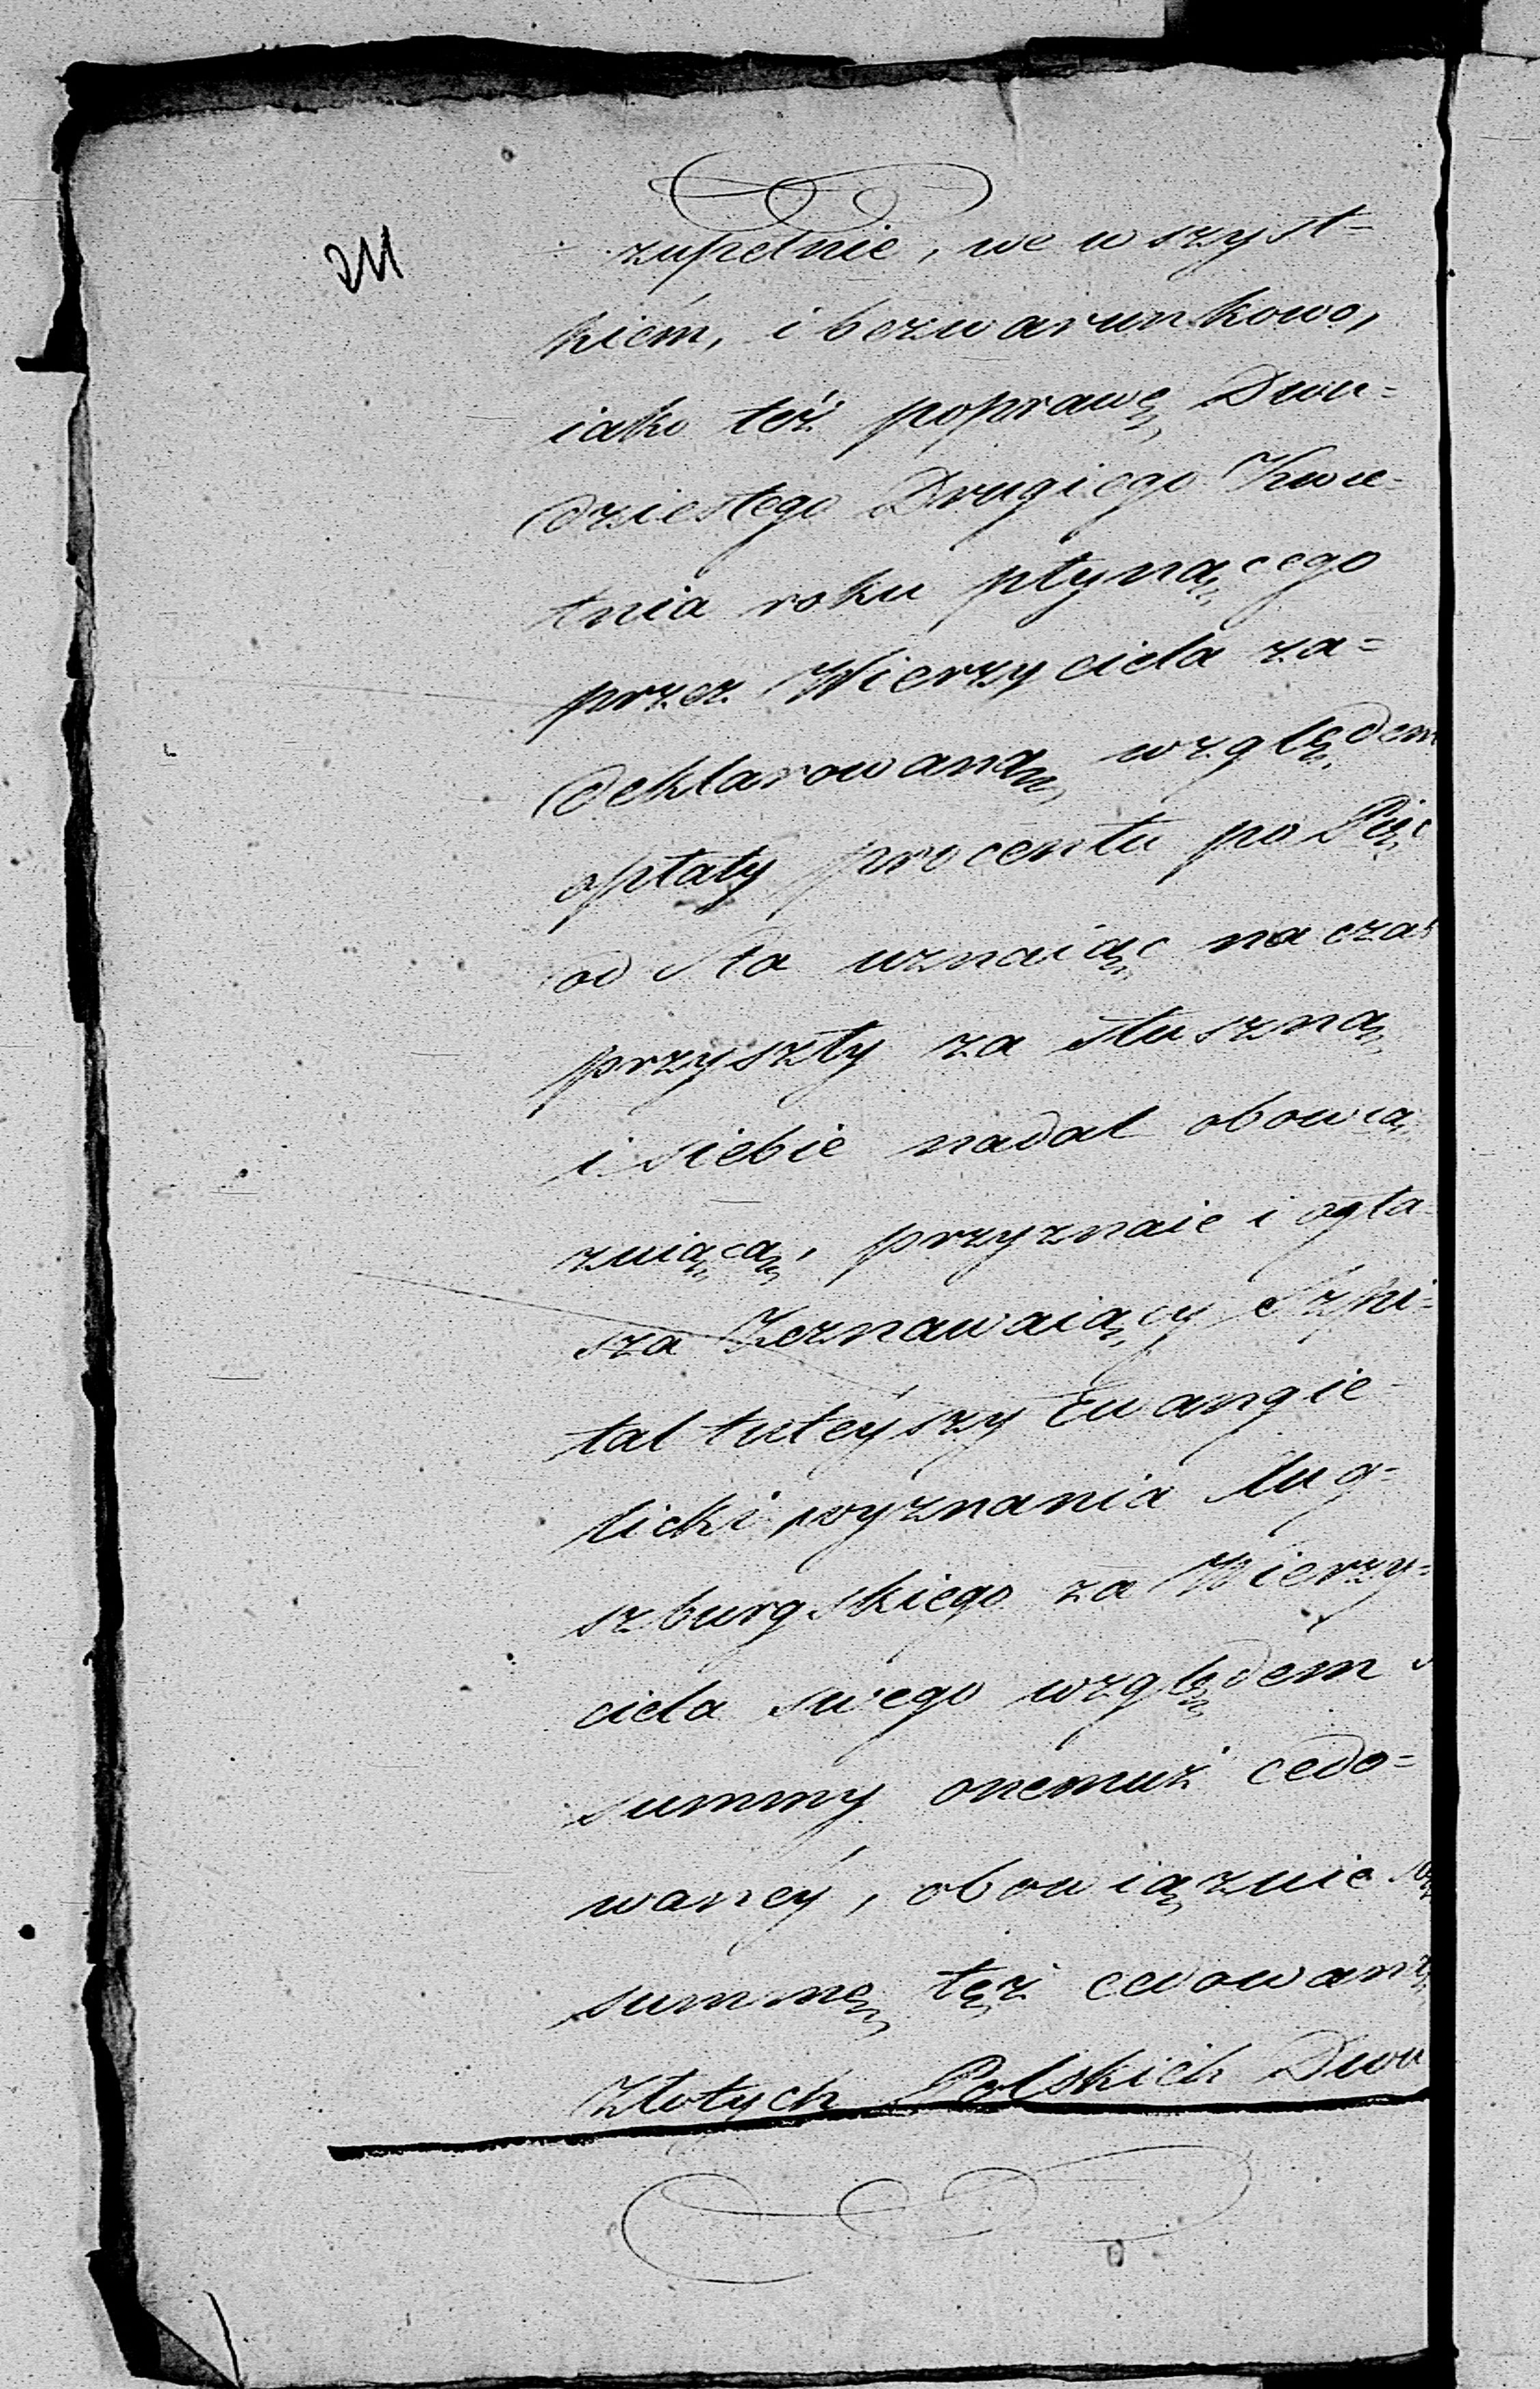 211
zupełnie, we wszyst=
kiém, i bezwarunkowo,
iako też poprawę Dwu=
dziestego Drugiego Kwie=
tnia roku płynącego
przez Wierzyciela za=
deklarowaną względem
opłaty procentu po Pięć
od Sta uznaiąc na czas
przyszły za słuszną
i siebie nadal obowią
zuiącą, przyznaie i ogła=
sza Zeznawaiący Szpi=
tal tuteyszy Ewangie=
licki wyznania Aug=
szburgskiego za Wierzy=
ciela swego względem
summy onemuż cedo=
waney, obowiązuie się
summę tęż cedowaną
Złotych Polskich Dwu